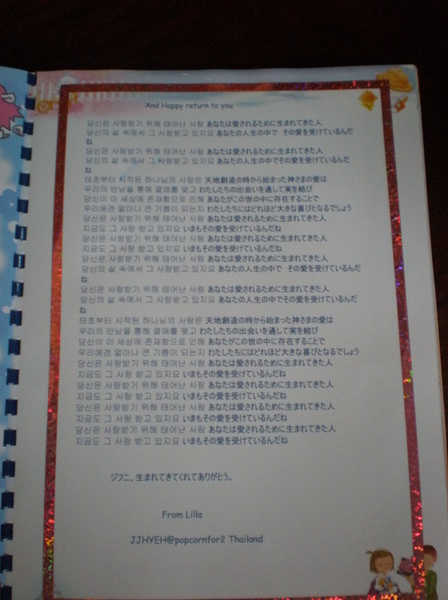 And Happy return to you
당신은 사랑받기 위해 태어난 사람 あなたは愛されるために生まれてきた人
당신의 삶 속에서 그 사랑받고 있지요 あなたの人生の中で その愛を受けているんだ
ね
당신은 사랑받기 위해 태어난 사람 あなたは愛されるために生まれてきた人
당신의 삶 속에서 그 사랑받고 있지요 あなたの人生の中でその愛を受けているんだ
ね
태초부터 시작된 하나님의 사랑은 天地創造の時から始まった神さまの愛は
우리의 만남을 통해 열매를 맺고 わたしたちの出会いを通して実を結び
당신이 이 세상에 존재함으로 인해 あなたがこの世の中に存在することで
우리에겐 얼마나 큰 기쁨이 되는지 わたしたちにはどれほど大きな喜びとなるでしょう
당신은 사랑받기 위해 태어난 사람 あなたは愛されるために生まれてきた人
지금도 그 사랑 받고 있지요 いまもその愛を受けているんだね
당신은 사랑받기 위해 태어난 사람 あなたは愛されるために生まれてきた人
지금도 그 사랑 받고 있지요 いまもその愛を受けているんだね
당신은 사랑받기 위해 태어난 사람 あなたは愛されるために生まれてきた人
당신의 삶 속에서 그 사랑받고 있지요 あなたの人生の中で その愛を受けているんだ
ね
당신은 사랑받기 위해 태어난 사람 あなたは愛されるために生まれてきた人
당신의 삶 속에서 그 사랑받고 있지요 あなたの人生の中で その愛を受けているんだ
ね
태초부터 시작된 하나님의 사랑은 天地創造の時から始まった神さまの愛は
우리의 만남을 통해 열매를 맺고 わたしたちの出会いを通して実を結び
당신이 이 세상에 존재함으로 인해 あなたがこの世の中に存在することで
우리에겐 얼마나 큰 기쁨이 되는지 わたしたちにはどれほど大きな喜びとなるでしょう
당신은 사랑받기 위해 태어난 사람 あなたは愛されるために生まれてきた人
지금도 그 사랑 받고 있지요 いまもその愛を受けているんだね
당신은 사랑받기 위해 태어난 사람 あなたは愛されるために生まれてきた人
지금도 그 사랑 받고 있지요 いまもその愛を受けているんだね
당신은 사랑받기 위해 태어난 사람 あなたは愛されるために生まれてきた人
지금도 그 사랑 받고 있지요 いまもその愛を受けているんだね
당신은 사랑받기 위해 태어난 사람 あなたは愛されるために生まれてきた人
지금도 그 사랑 받고 있지요 いまもその愛を受けているんだね
ジフニ、生まれてきてくれてありがとう。
From Lilla
JJHYEH@popcornfor2 Thailand